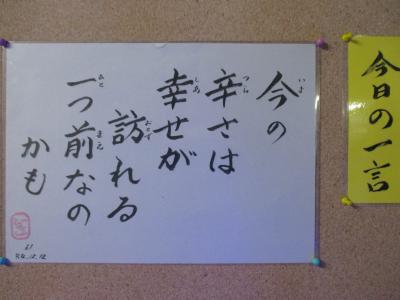 今日の一言
今の
辛さは
幸せが
訪れる
一つ前なの
かも